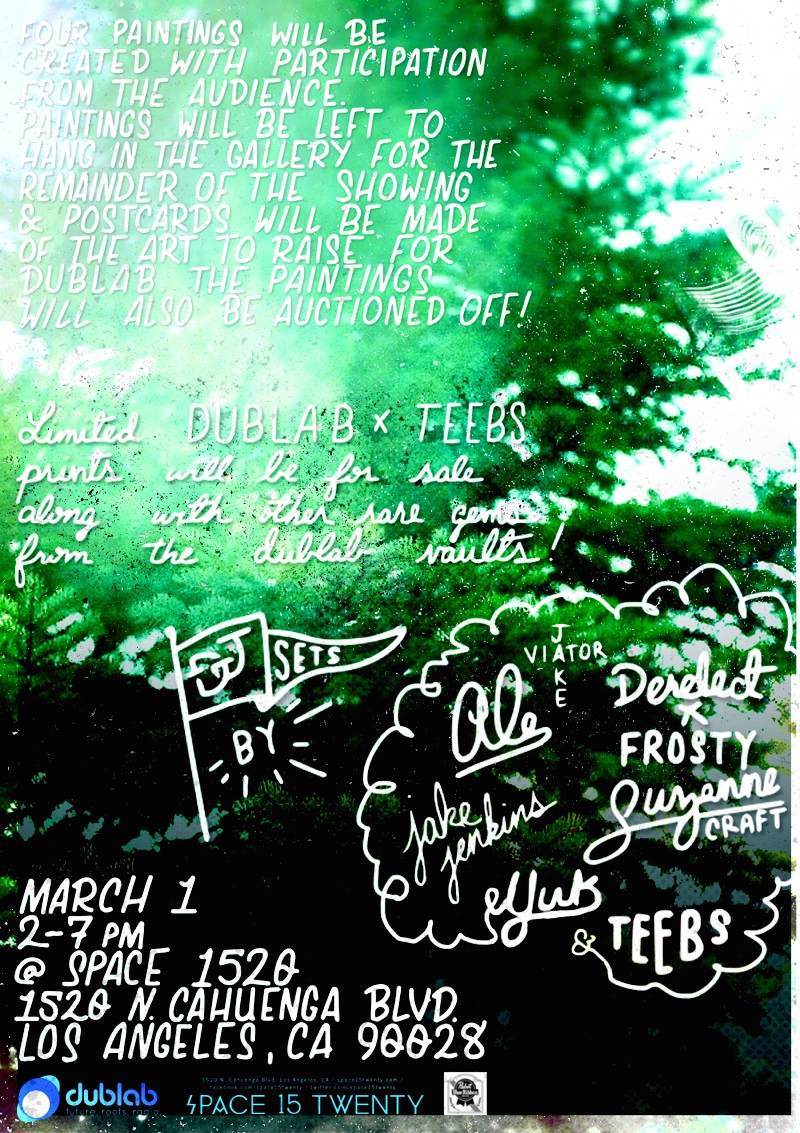 FOUR PAINTINGS WILL BE
CREATED WITH PARTICIPATION
FROM THE AUDIENCE.
PAINTINGS WILL BE LEFT TO
HANG IN THE GALLERY FOR THE
REMAINDER OF THE SHOWING
& POSTCARDS WILL BE MADE
OF THE ART TO RAISE FOR
DUBLAB. THE PAINTINGS
WILL ALSO BE AUCTIONED OFF!
Limited DUBLAB x TEEBS
prints will be for sale
along with other rare gems
from the dublab vaults!
DJ SETS
BY
Ale
JAKE
VIATOR
Derelect
x
FROSTY
Suzanne
CRAFT
jake
jenkins
eYuk
& TEEBS
MARCH 1
2-7 PM
@ SPACE 1520
1520 N. CAHUENGA BLVD.
LOS ANGELES, CA 90028
dublab
future roots radio
1520 N. Cahuenga Blvd. Los Angeles, CA / space15twenty.com /
facebook.com/space15twenty / twitter.com/space15twenty
SPACE 15 TWENTY
Pabst
Blue Ribbon